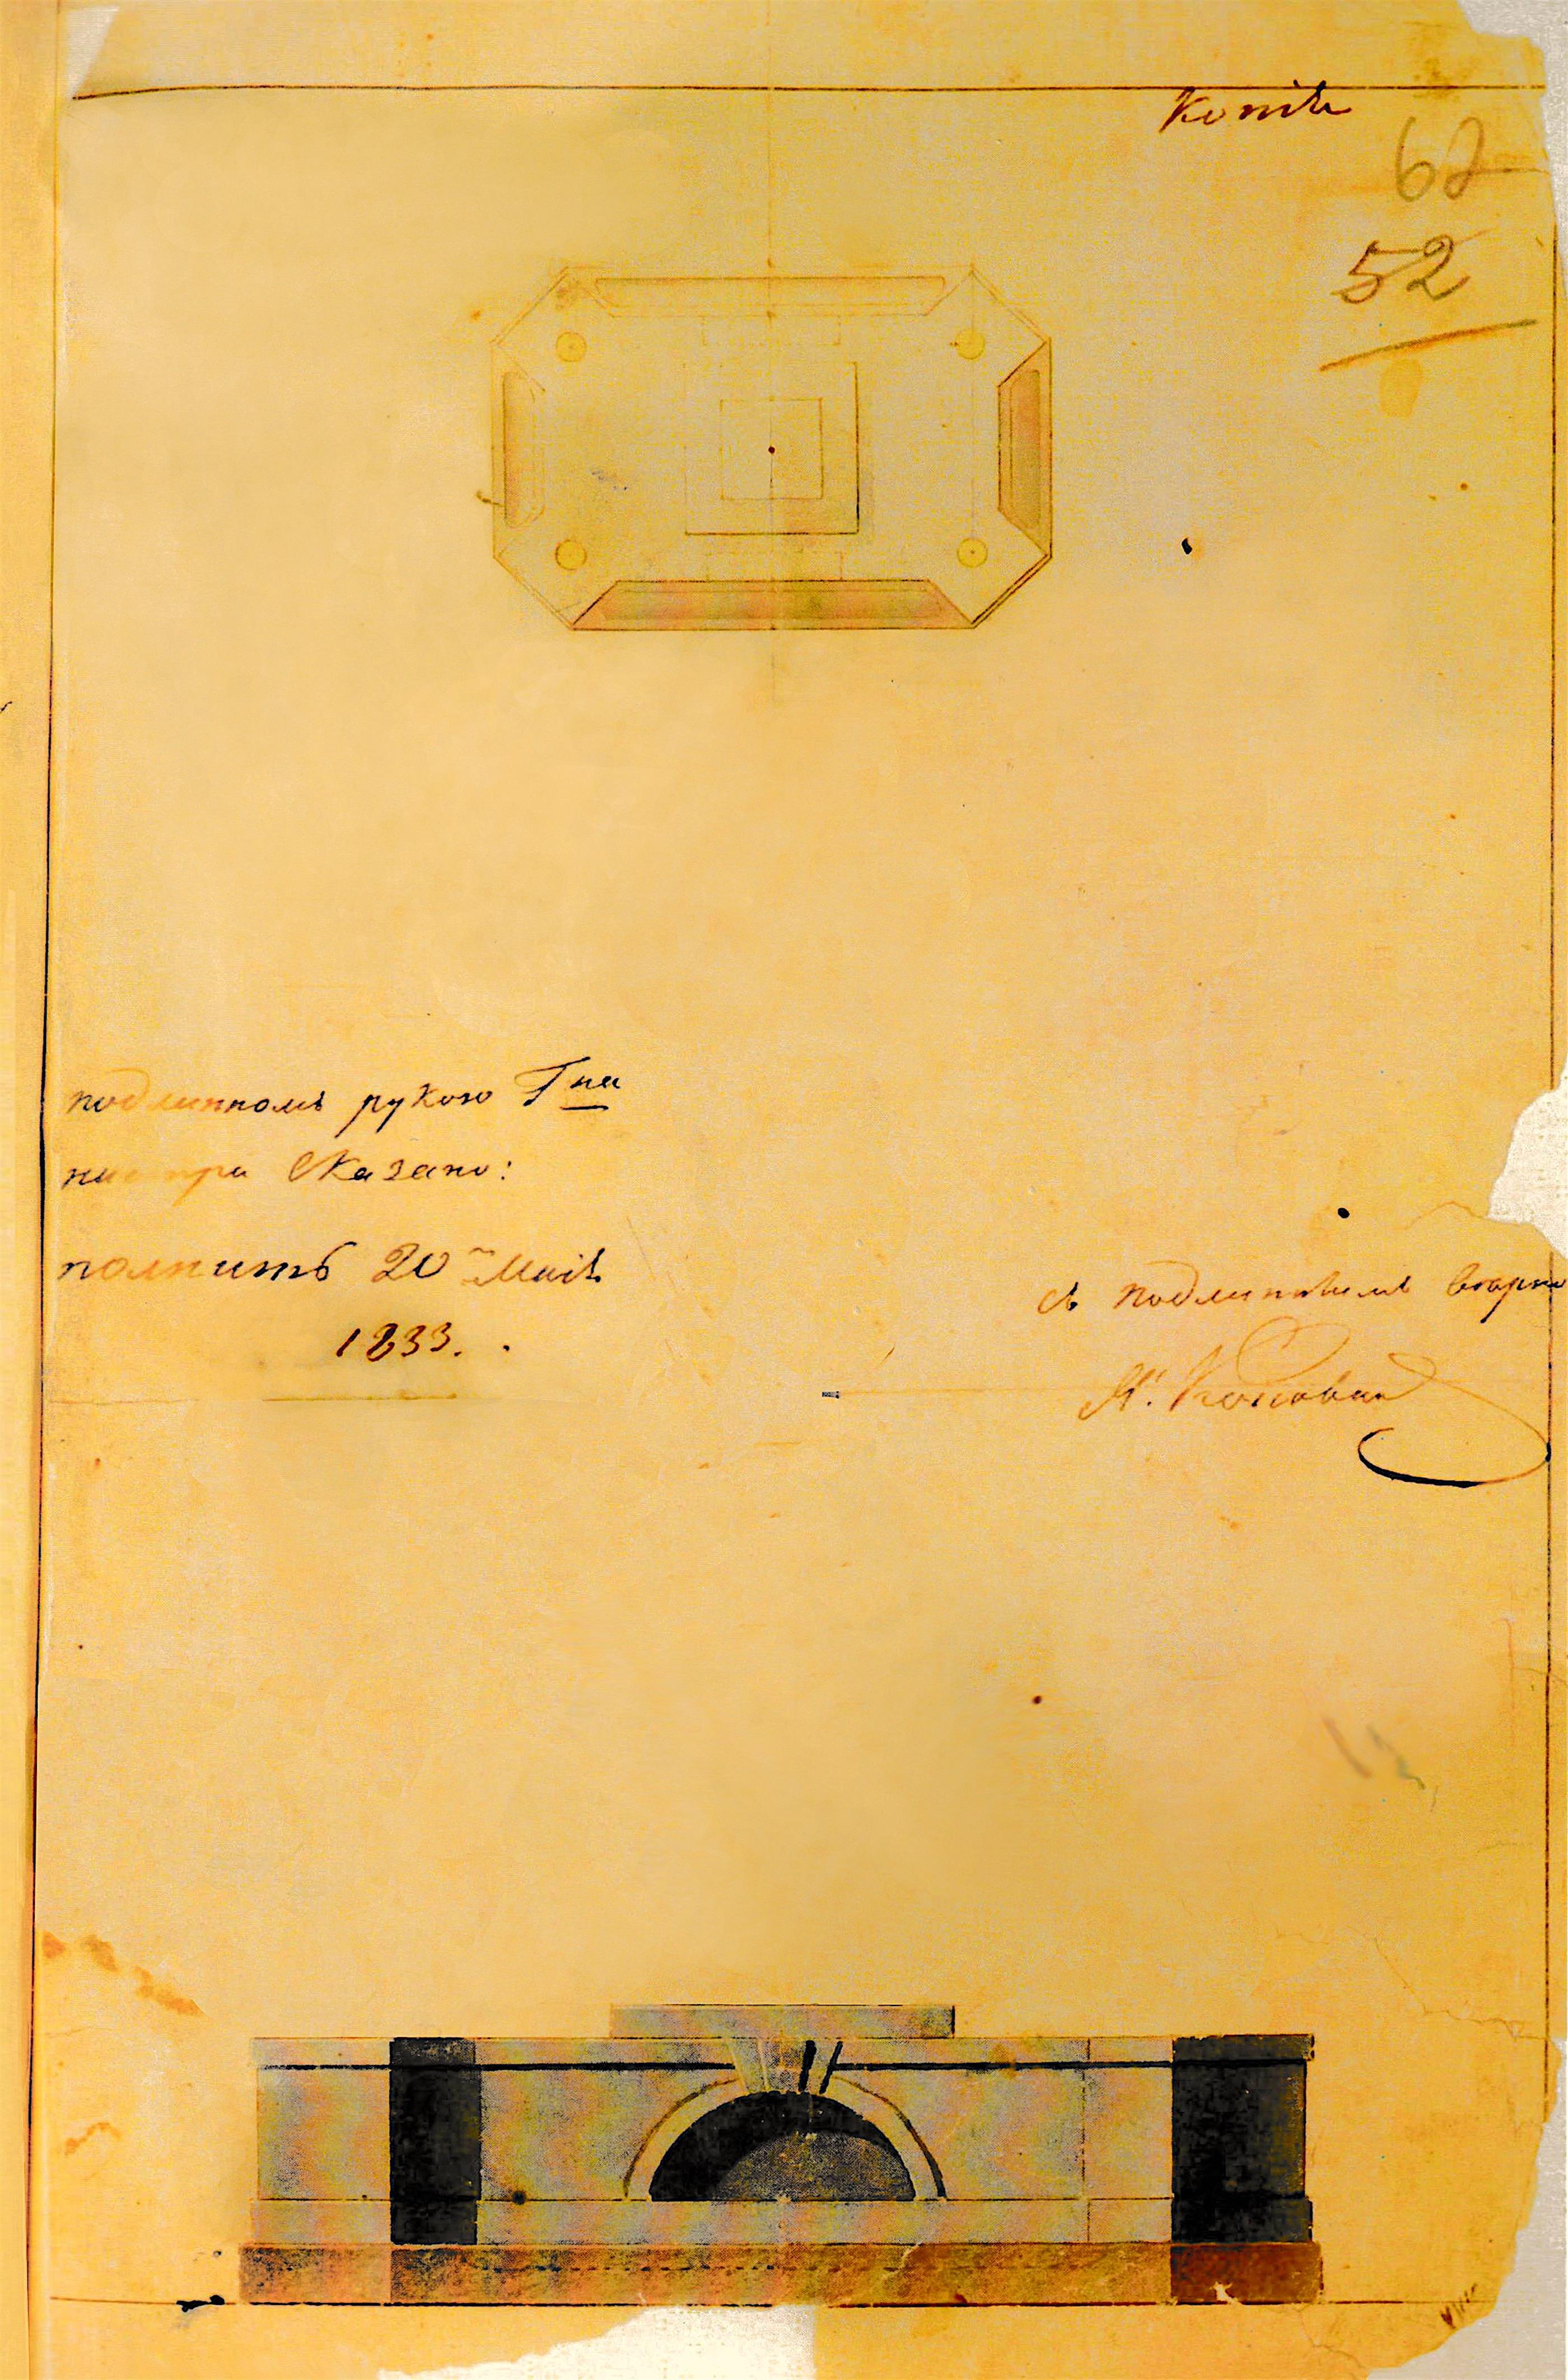 Копія
62
52
подлинномъ рукою Гна
нистра Сказано:
полнить 20 Маія
1833.
съ подлиннымъ верно